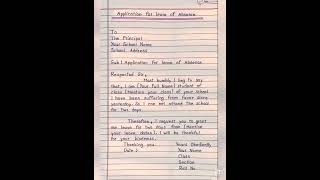 Application for leave of Absence
To
The Principal
Your School Name
School Address
Sub : Application for leave of Absence
Respected Sir,
Most humbly I beg to say
that, I am (Your Full Name) student of
class (Mention your class) of your school
I have been suffering from fever since
yesterday. So I can not attend the school
for two days.
Therefore, I request you to grant
me leave for two days from (mention
your leave dates). I will be thankful
for your kindness.
Thanking you. Yours Obediently
Date :- Your Name
Class
Section
Roll No